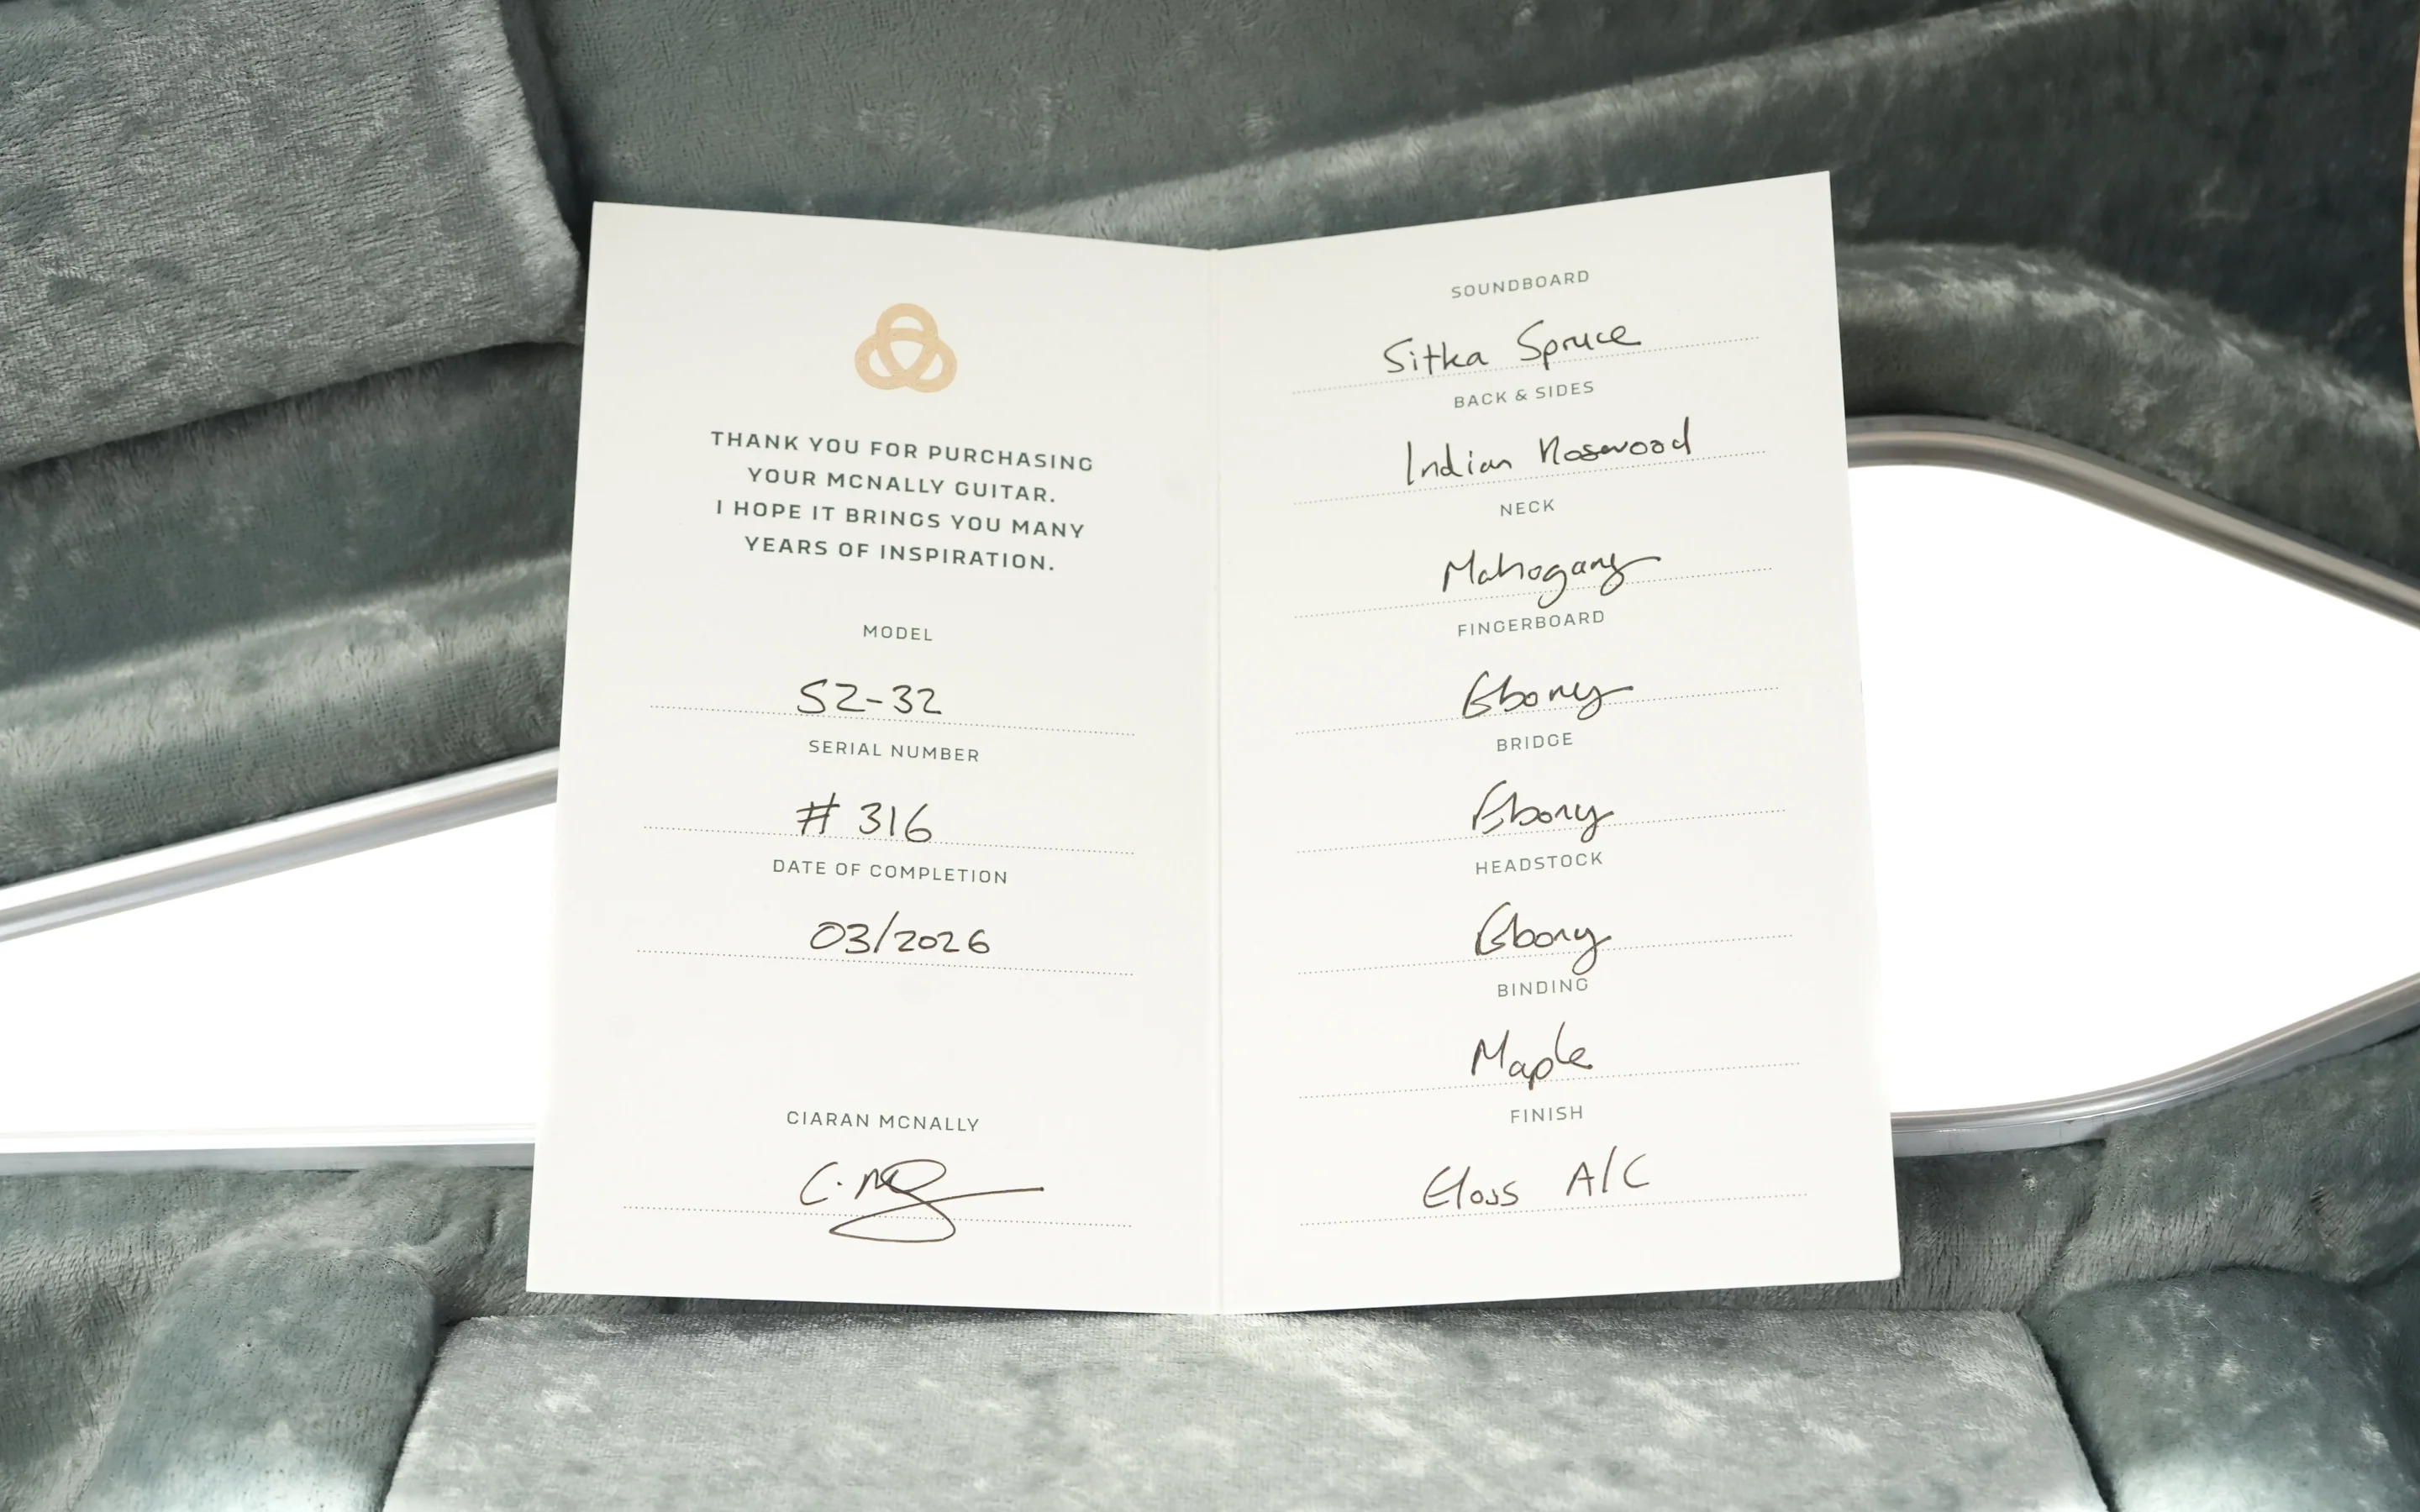 THANK YOU FOR PURCHASING
YOUR MCNALLY GUITAR.
I HOPE IT BRINGS YOU MANY
YEARS OF INSPIRATION.
MODEL
S2-32
SERIAL NUMBER
# 316
DATE OF COMPLETION
03/2026
CIARAN MCNALLY
SOUNDBOARD
Sitka Spruce
BACK & SIDES
Indian Rosewood
NECK
Mahogany
FINGERBOARD
Ebony
BRIDGE
Ebony
HEADSTOCK
Ebony
BINDING
Maple
FINISH
Gloss A/C